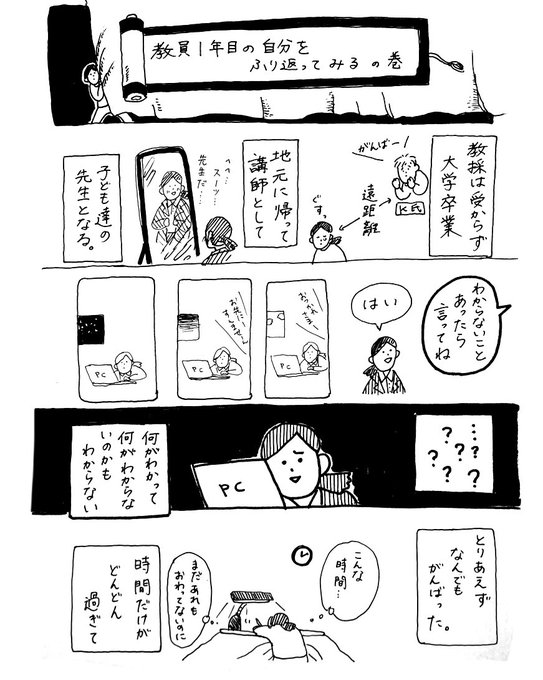 教員1年目の自分を
ふり返ってみる の巻
教採は受からず
大学卒業
がんばー!
K氏
遠距離
ぐすっ
地元に帰って
講師として
へへ…
スーツ…
先生だ…
子ども達の
先生となる。
わからないこと
あったら
言ってね
はい
おつかれ
さまー
PC
お先に
すいません
PC
PC
…??
??
??
PC
何がわかって
何がわからな
いのかも
わからない
とりあえず
なんでも
がんばった。
こんな
時間…
まだあれも
おわってないのに
時間だけが
どんどん
過ぎて